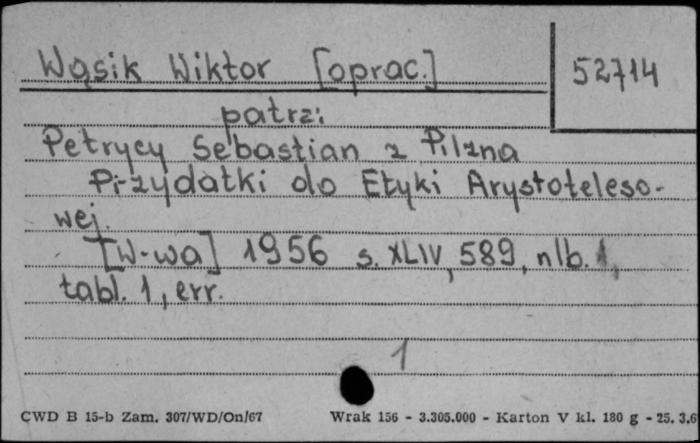 Wąsik Wiktor [oprac.]
52714
patrz:
Petrycy Sebastian z Pilzna
Przydatki do Etyki Arystoteleso-
wej.
[W-wa] 1956 s. XLIV, 589, nlb. 1,
tabl. 1, err.
1
CWD B 15-b Zam. 307/WD/On/67 Wrak 156 - 3.305.000 - Karton V kl. 180 g - 25. 3.6